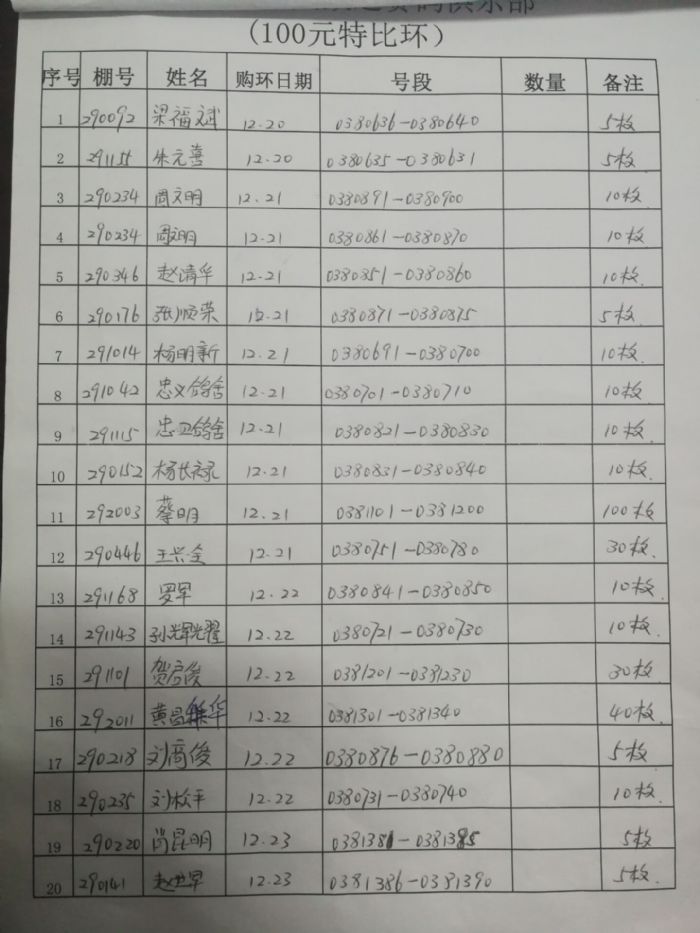 俱乐部
(100元特比环)
序号 棚号 姓名 购环日期 号段 数量 备注
1 290092 梁福斌 12.20 0380636-0380640 5枚
2 291155 朱元喜 12.20 0380635-0380631 5枚
3 290234 周文明 12.21 0380891-0380900 10枚
4 290234 周文明 12.21 0380861-0380870 10枚
5 290346 赵清华 12.21 0380851-0380860 10枚
6 290176 张顺荣 12.21 0380871-0380875 5枚
7 291014 杨明新 12.21 0380691-0380700 10枚
8 291042 忠义鸽舍 12.21 0380701-0380710 10枚
9 291115 忠卫鸽舍 12.21 0380821-0380830 10枚
10 290152 杨长禄 12.21 0380831-0380840 10枚
11 292003 蔡明 12.21 0381101-0381200 100枚
12 290446 王兴全 12.21 0380751-0380780 30枚
13 291168 罗军 12.22 0380841-0380850 10枚
14 291143 孙辉光耀 12.22 0380721-0380730 10枚
15 291101 贺启俊 12.22 0381201-0381230 30枚
16 292011 黄昌华 12.22 0381301-0381340 40枚
17 290218 刘商俊 12.22 0380876-0380880 5枚
18 290235 刘枝平 12.22 0380731-0380740 10枚
19 290220 肖昆明 12.23 0381381-0381385 5枚
20 290141 赵世军 12.23 0381386-0381390 5枚